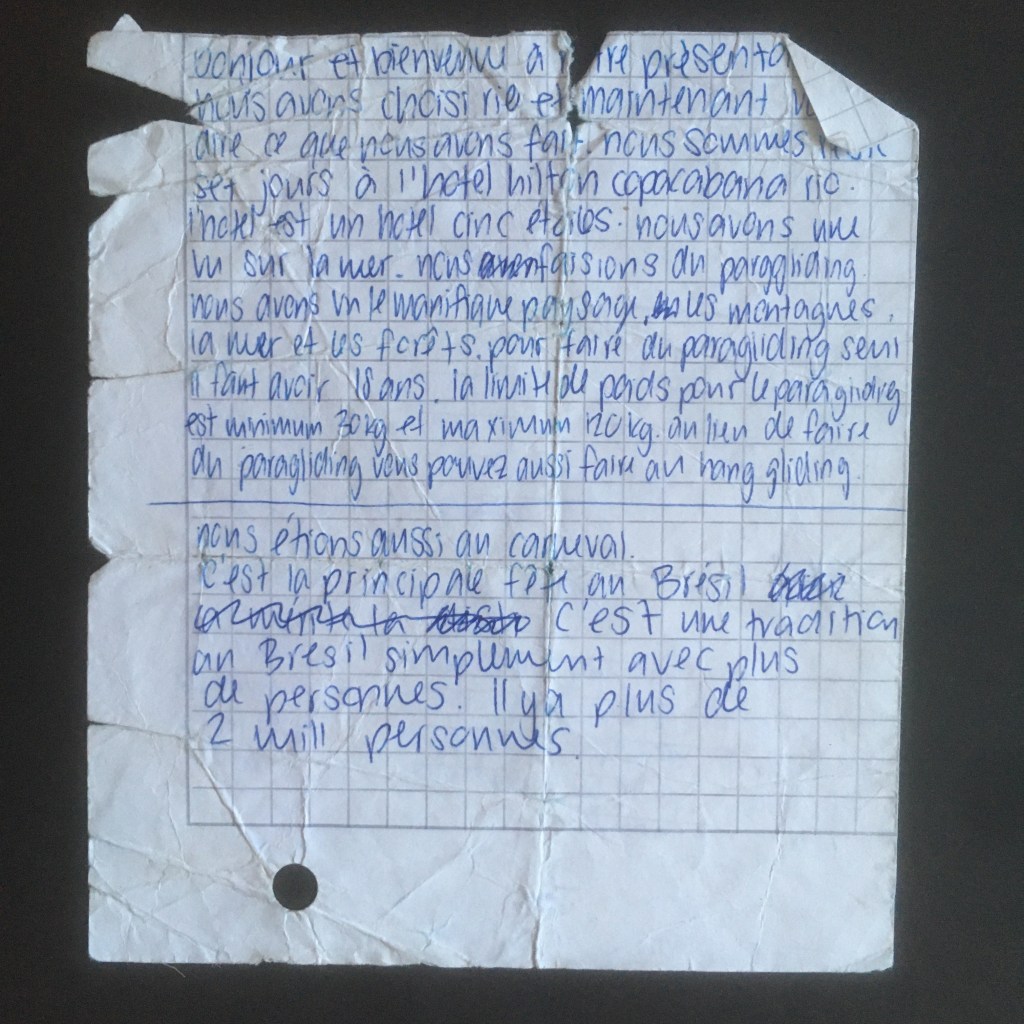 bonjour et bienvenue à
nous avons choisi rio et maintenant
dire ce que nous avons fait. nous sommes
set jours à l'hotel hilton copacabana rio.
l'hotel est un hotel cinc étoiles. nous avons une
vu sur la mer. nous faisions du paraggliding.
nous avons vu le manifique paysage, les montagnes,
la mer et les forêts. pour faire du paragliding seul
il faut avoir 18 ans. la limite de poids pour le paragliding
est minimum 30 kg et maximum 120 kg. au lieu de faire
du paragliding vous pouvez aussi faire du hang gliding.
nous étions aussi au carneval.
C'est la principale fête au Brésil
C'est une tradition
au Brésil simplement avec plus
de personnes. Il y a plus de
2 mill personnes.